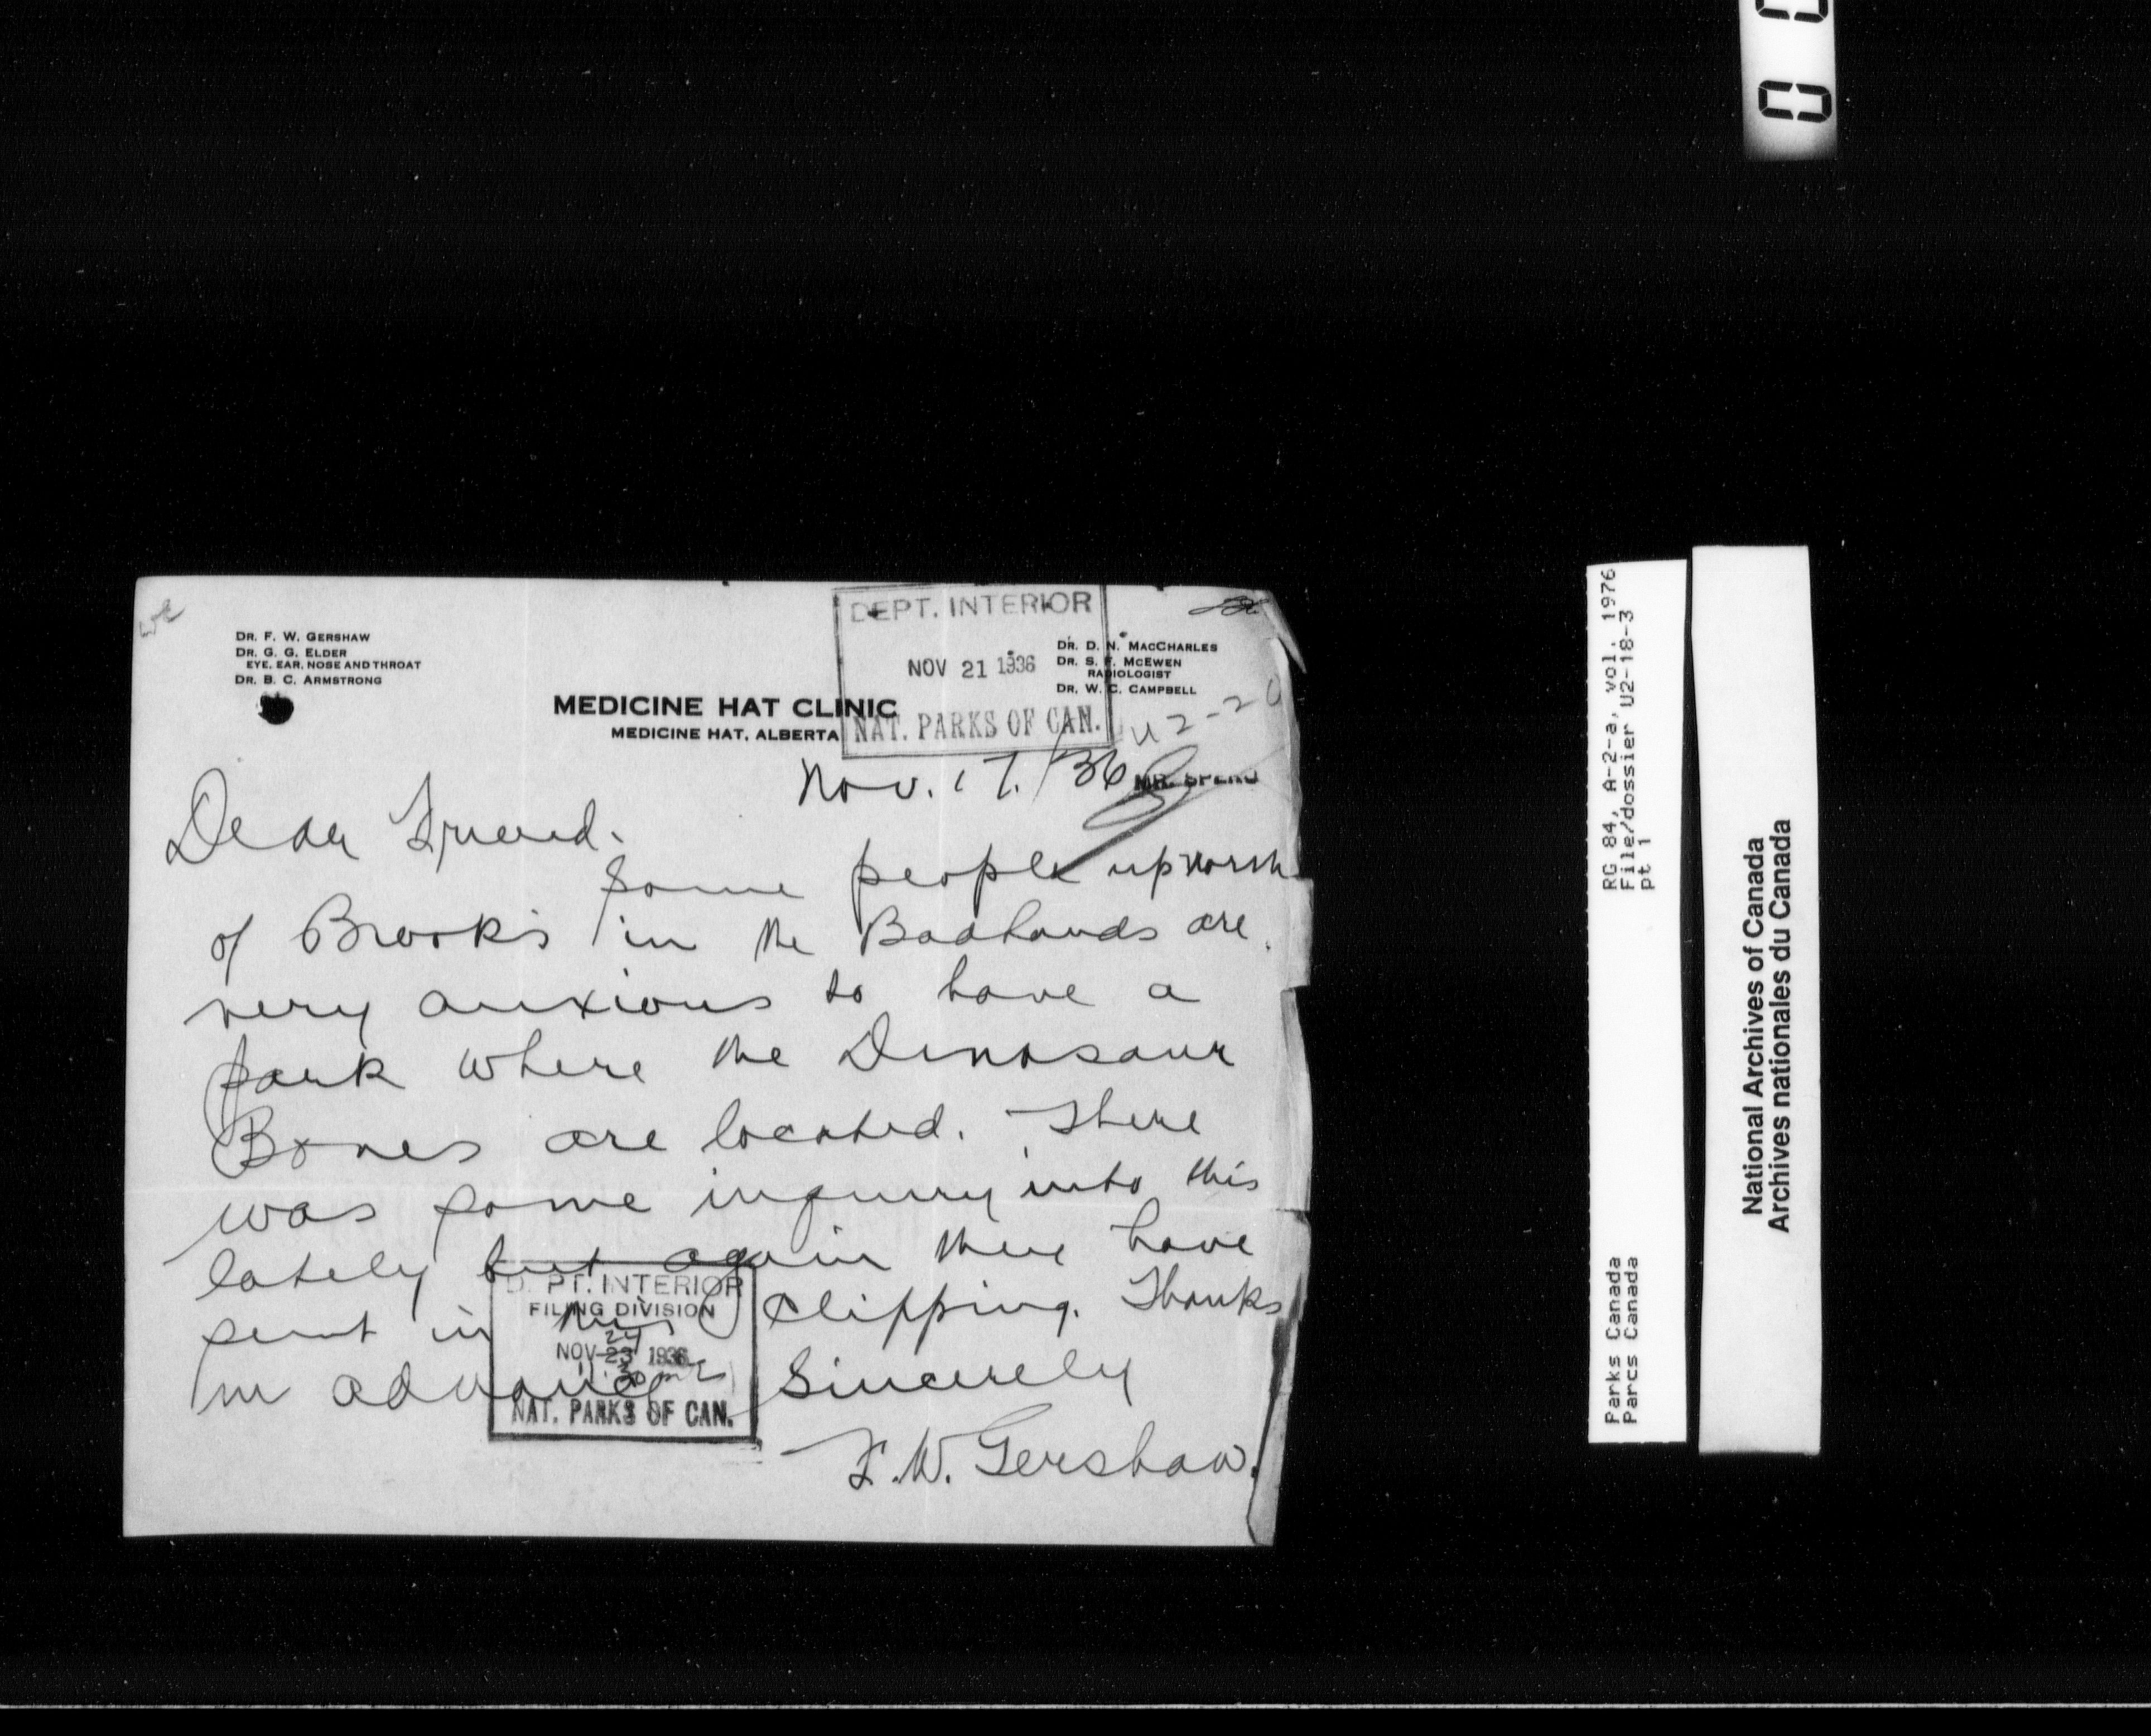 DEPT. INTERIOR
NOV 21 1936
NAT. PARKS OF CAN.
DR. F. W. GERSHAW
DR. G. G. ELDER
EYE, EAR, NOSE AND THROAT
DR. B. C. ARMSTRONG
DR. D. N. MACCHARLES
DR. S. F. MCEWEN
RADIOLOGIST
DR. W. C. CAMPBELL
MEDICINE HAT CLINIC
MEDICINE HAT, ALBERTA
U2-20
Nov. 17. /36
MR. SPERO
Dear Friend.
Some people up north
of Brooks in the Badlands are
very anxious to have a
park where the Dinosaur
Bones are located. There
was some inquiry into this
lately but again they have
sent in this clipping. Thanks
in advance Sincerely
F.W. Gershaw.
DEPT. INTERIOR
FILING DIVISION
24
NOV 23 1936
NAT. PARKS OF CAN.
RG 84, A-2-a, vol. 1976
File/dossier U2-18-3
pt 1
Parks Canada
Parcs Canada
National Archives of Canada
Archives nationales du Canada